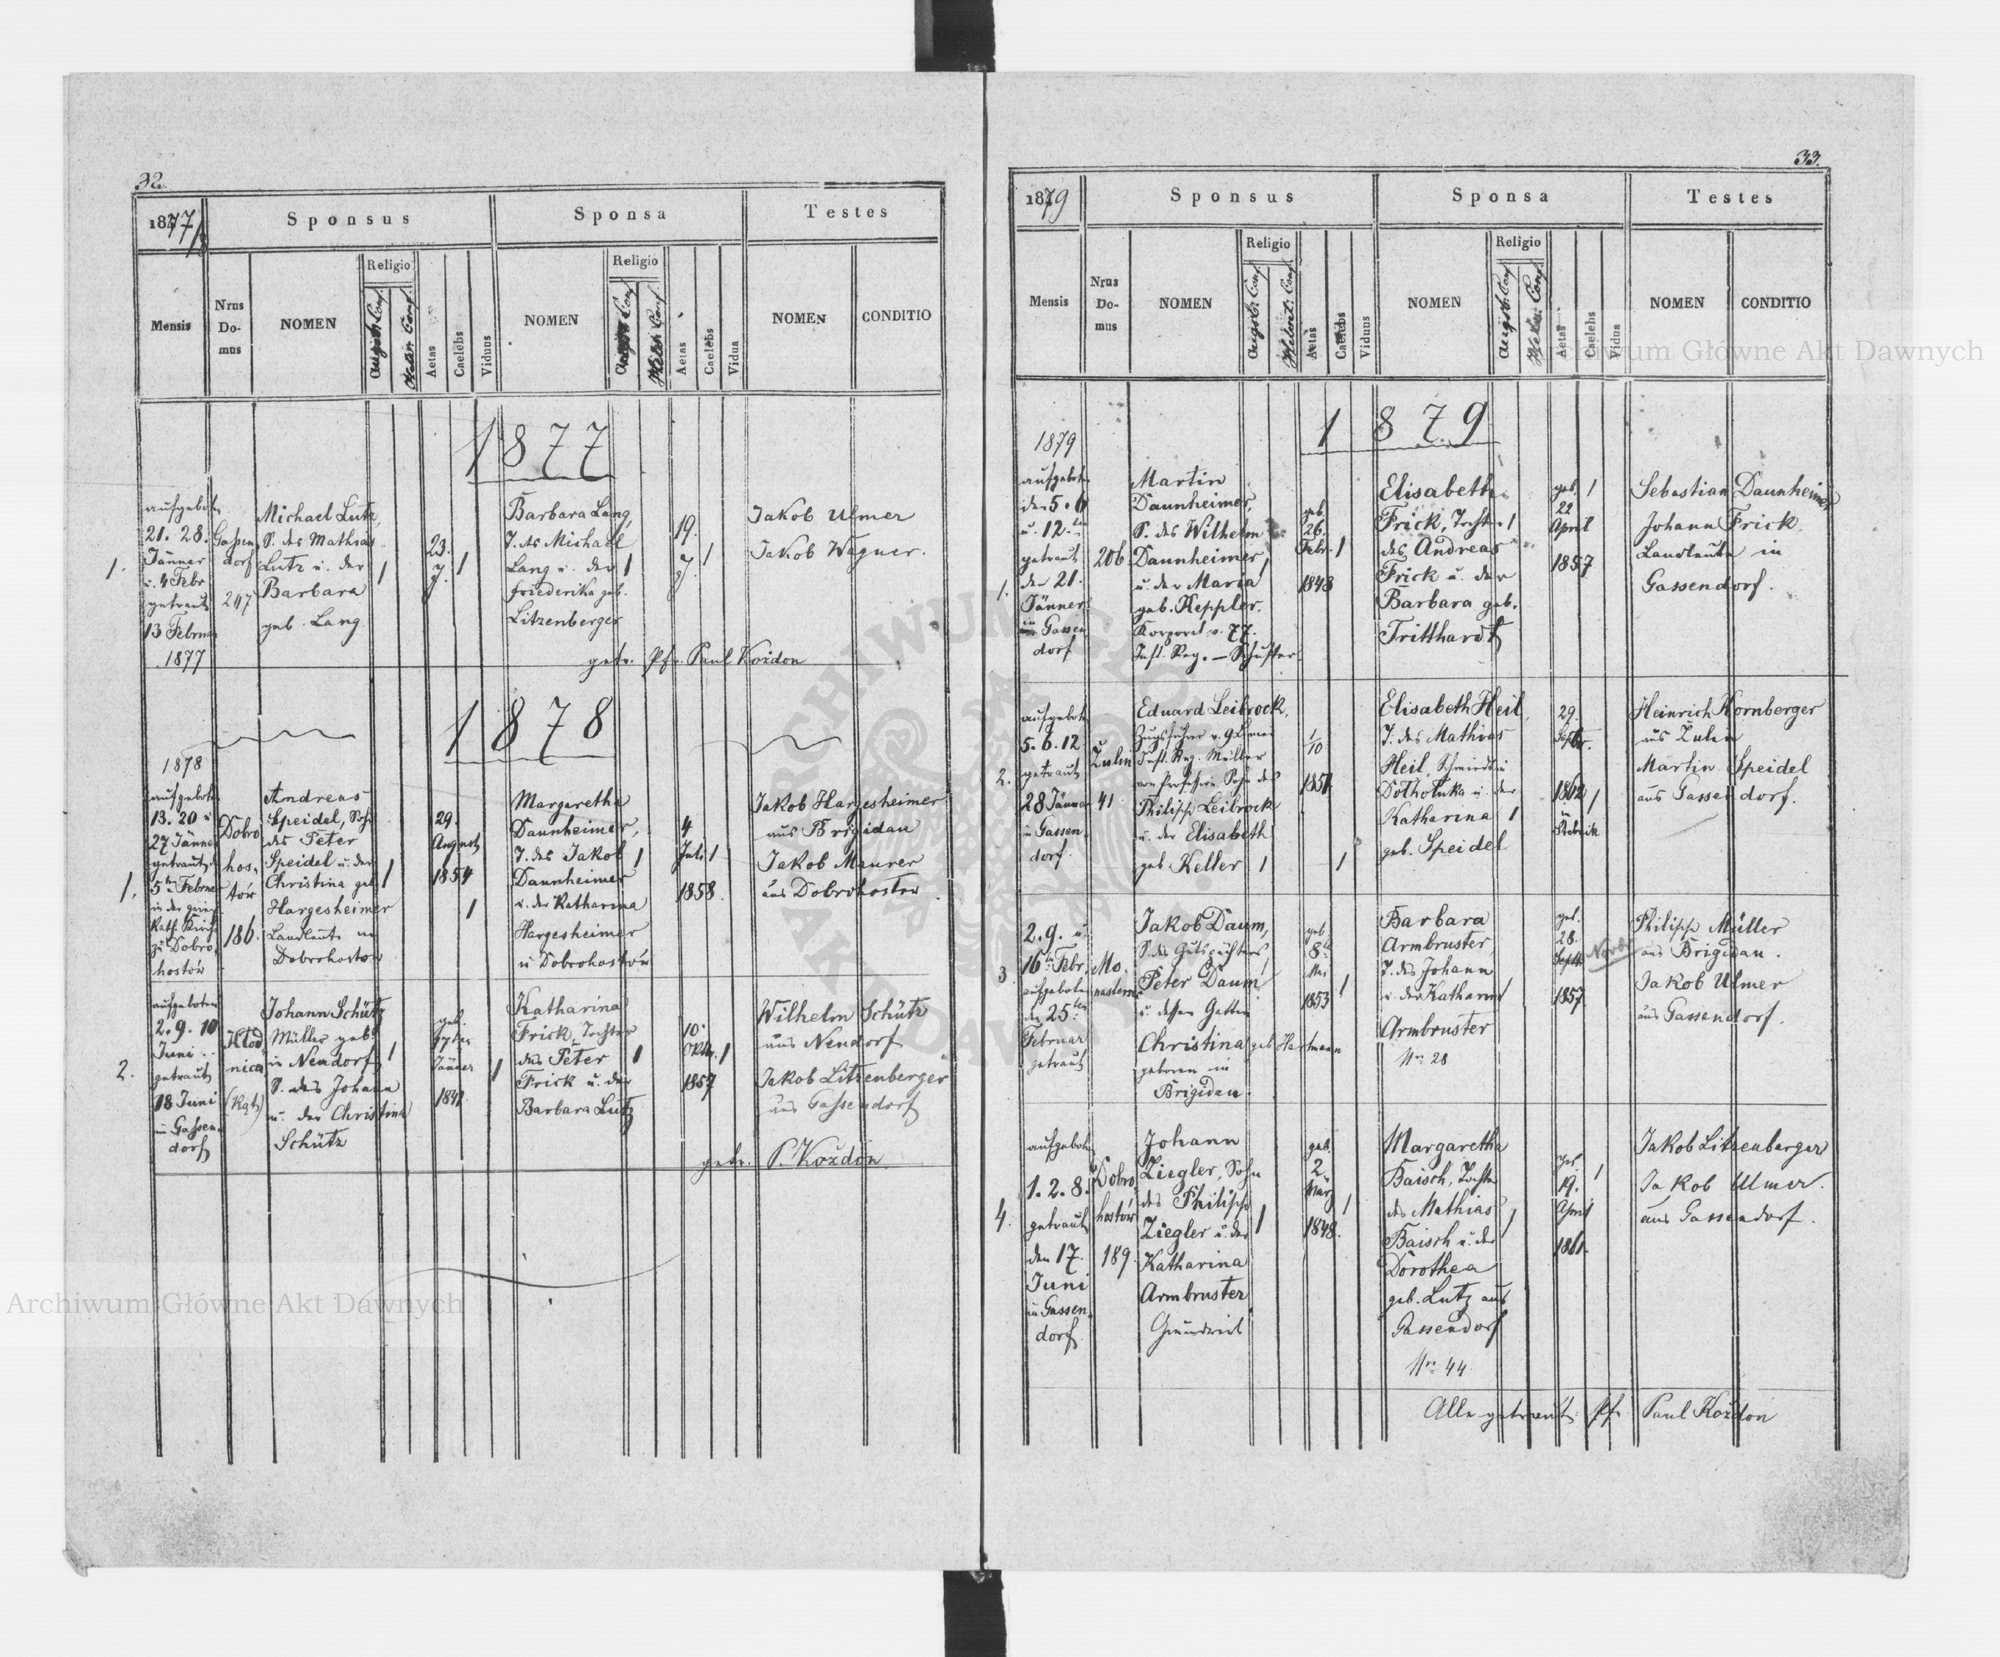 32.
1877/8
Sponsus
Sponsa
Testes
Mensis
Nrus Domus
NOMEN
Religio
Augsb. Conf.
Helv. Conf.
Aetas
Caelebs
Viduus
NOMEN
Religio
Augsb. Conf.
Helv. Conf.
Aetas
Caelebs
Vidua
NOMEN
CONDITIO
1877
1.
aufgeboten
21. 28.
Jänner
u. 4 Febr
getraut
13 Februar
1877
Gassen
dorf
247
Michael Lutz,
S. des Mathias
Lutz u. der
Barbara
geb. Lang
1
23.
J.
1
Barbara Lang,
T. des Michael
Lang u. der
Friederika geb.
Litzenberger
1
19.
J.
1
Jakob Ulmer
Jakob Wagner.
getr. Pfr. Paul Koždon
1878
1.
1878
aufgeboten
13. 20 u
27 Jänner
getraut d
5ten Februar
in der griech
Kath. Kirche
zu Dobro-
hostów
Dobro
hos-
tów
186.
Andreas
Speidel, Sohn
des Peter
Speidel u. der
Christina geb
Hargesheimer
Landleute in
Dobrohostow
1
29.
August
1854
1
Margaretha
Daunheimer,
T. des Jakob
Daunheimer
u. der Katharina
Hargesheimer
in Dobrohostów
1
4
Juli
1858.
1
Jakob Hargesheimer
aus Brigidau
Jakob Maurer
aus Dobrohostow
2.
aufgeboten
2. 9. 10
Juni
getraut
18 Juni
in Gassen-
dorf
Johann Schütz
Müller geb.
in Neudorf
S. des Johann
u. der Christina
Schütz
1
geb.
Jänner
1
Katharina
Frick, Tochter
des Peter
Frick u. der
Barbara Lutz
1
10.
Oktb.
1857
1
Wilhelm Schütz
aus Neudorf
Jakob Litzenberger
aus Gassendorf
getr. P. Koždon
33.
1879
Sponsus
Sponsa
Testes
Mensis
Nrus Domus
NOMEN
Religio
Augsb. Conf.
Helvet. Conf.
Aetas
Caelebs
Viduus
NOMEN
Religio
Augsb. Conf.
Helv. Conf.
Aetas
Caelebs
Vidua
NOMEN
CONDITIO
1879
1.
1879
aufgeboten
den 5. 6
u. 12.ten
getraut
den 21.
Jänner
in Gassen
dorf
206
Martin
Daunheimer,
S. des Wilhelm
Daunheimer
u. der Maria
geb. Keppler.
Korporal v. 77.
Inft. Reg. — Schuster
1
geb.
26.
Febr.
1848
1
Elisabeth
Frick, Tochter
des Andreas
Frick u. der
Barbara geb.
Tritthardt
1
geb.
22
April
1857
1
Sebastian Daunheimer
Johann Frick
Landleute in
Gassendorf.
2.
aufgeboten
5. 6. 12
getraut
28 Jänner
in Gassen-
dorf.
Zulin
41
Eduard Leibrock,
Zugsführer v. 9
Inft. Reg. Müller
von Profession, Sohn des
Philipp Leibrock
u. der Elisabeth
geb Keller
1
1/10
1851
1
Elisabeth Heil,
T. des Mathias
Heil, Schmied in
Dothotuka u. der
Katharina
geb. Speidel
1
29.
Septbr.
1862
1
Heinrich Kornberger
aus Zulin
Martin Speidel
aus Gassendorf.
3
2. 9. u.
16ten Febr.
aufgeboten
den 25ten
Februar
getraut
Jakob Daum,
S. des Gutspächters
Peter Daum
u. dessen Gattin
Christina geb Hartmann
geboren in
Brigidau.
geb.
8t
Mai
1853
1
Barbara
Armbruster,
T. des Johann
u. der Katharina
Armbruster
Nro 28
1
geb.
28.
Septb.
1857
Philipp Müller
aus Brigidau.
Jakob Ulmer
aus Gassendorf.
4.
aufgeboten
1. 2. 8.
getraut
den 17.
Juni
in Gassen-
dorf.
Dobro
hostów
189.
Johann
Ziegler, Sohn
des Philipp
Ziegler u. der
Katharina
Armbruster
Grundwirt
1
geb.
2.
März
1848.
1
Margaretha
Baisch, Tochter
des Mathias
Baisch u. der
Dorothea
geb. Lutz aus
Gassendorf
Nro 44
1
geb.
19.
April
1861.
1
Jakob Litzenberger
Jakob Ulmer.
aus Gassendorf.
Alle getraut Pfr. Paul Koždon
Archiwum Główne Akt Dawnych
Archiwum Główne Akt Dawnych
ARCHIWUM GŁÓWNE AKT DAWNYCH